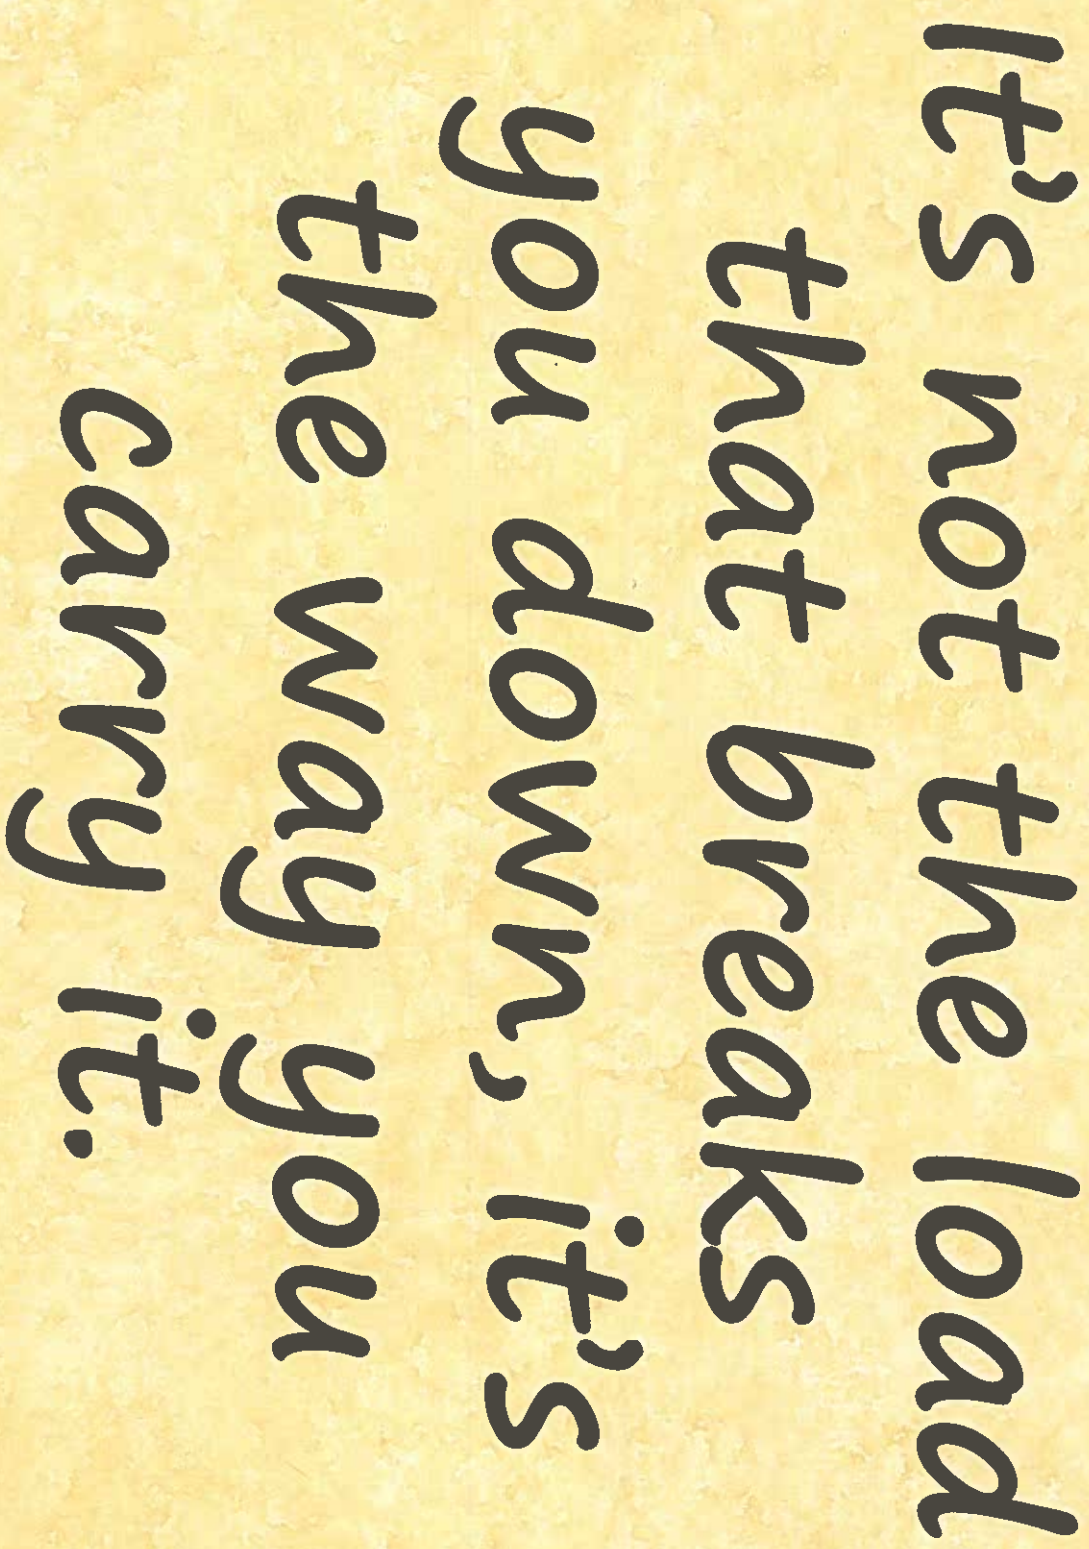 It's not the load
that breaks
you down, it's
the way you
carry it.